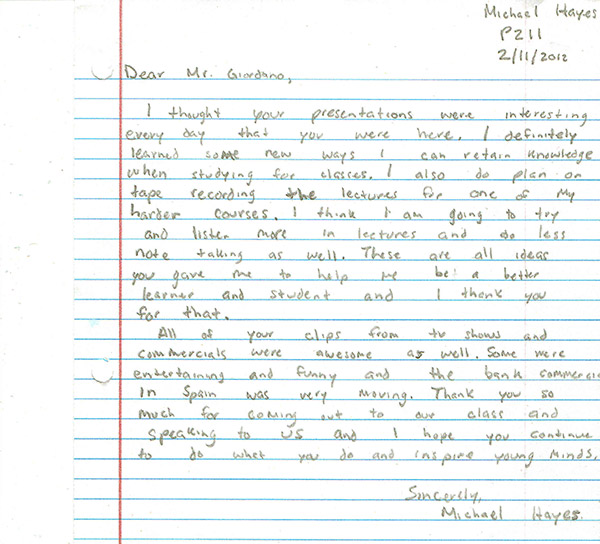 Michael Hayes
P211
2/11/2012
Dear Mr. Giordano,
I thought your presentations were interesting
every day that you were here. I definitely
learned some new ways I can retain knowledge
when studying for classes. I also do plan on
tape recording the lectures for one of my
harder courses. I think I am going to try
and listen more in lectures and do less
note taking as well. These are all ideas
you gave me to help me be a better
learner and student and I thank you
for that.
All of your clips from tv shows and
commercials were awesome as well. Some were
entertaining and funny and the bank commercia
in Spain was very moving. Thank you so
much for coming out to our class and
speaking to us and I hope you continue
to do what you do and inspire young minds.
Sincerely,
Michael Hayes